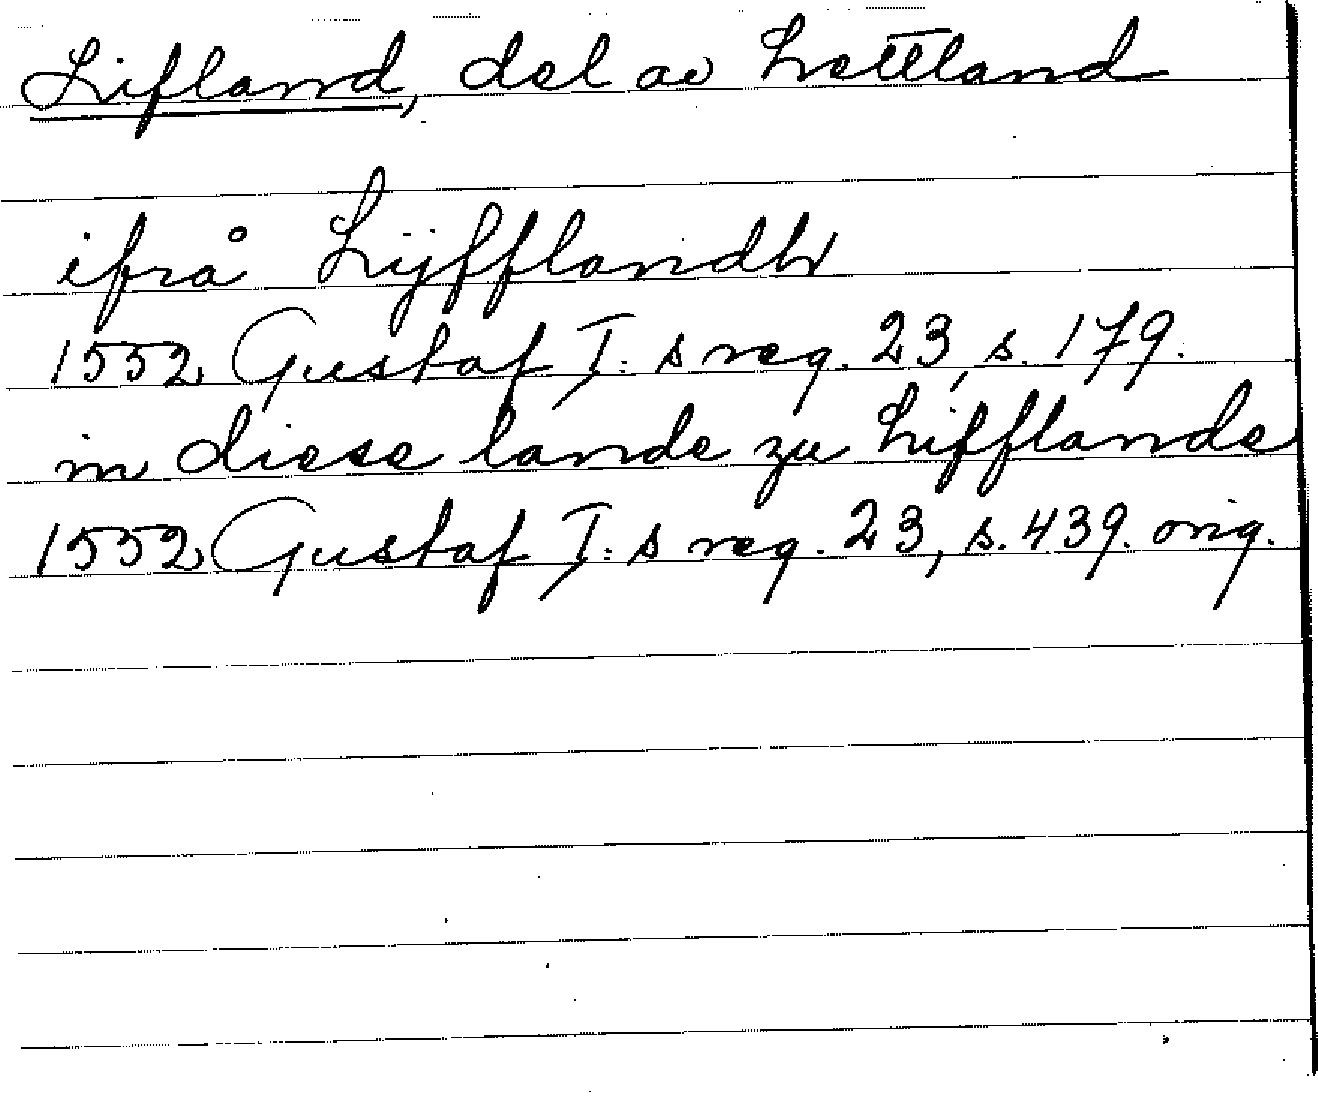 Lifland, del av Lettland
ifrå Lijfflandh
1552 Gustaf I:s reg. 23, s. 179.
in diese lande zu Lifflande
1552 Gustaf I:s reg. 23, s. 439. orig.